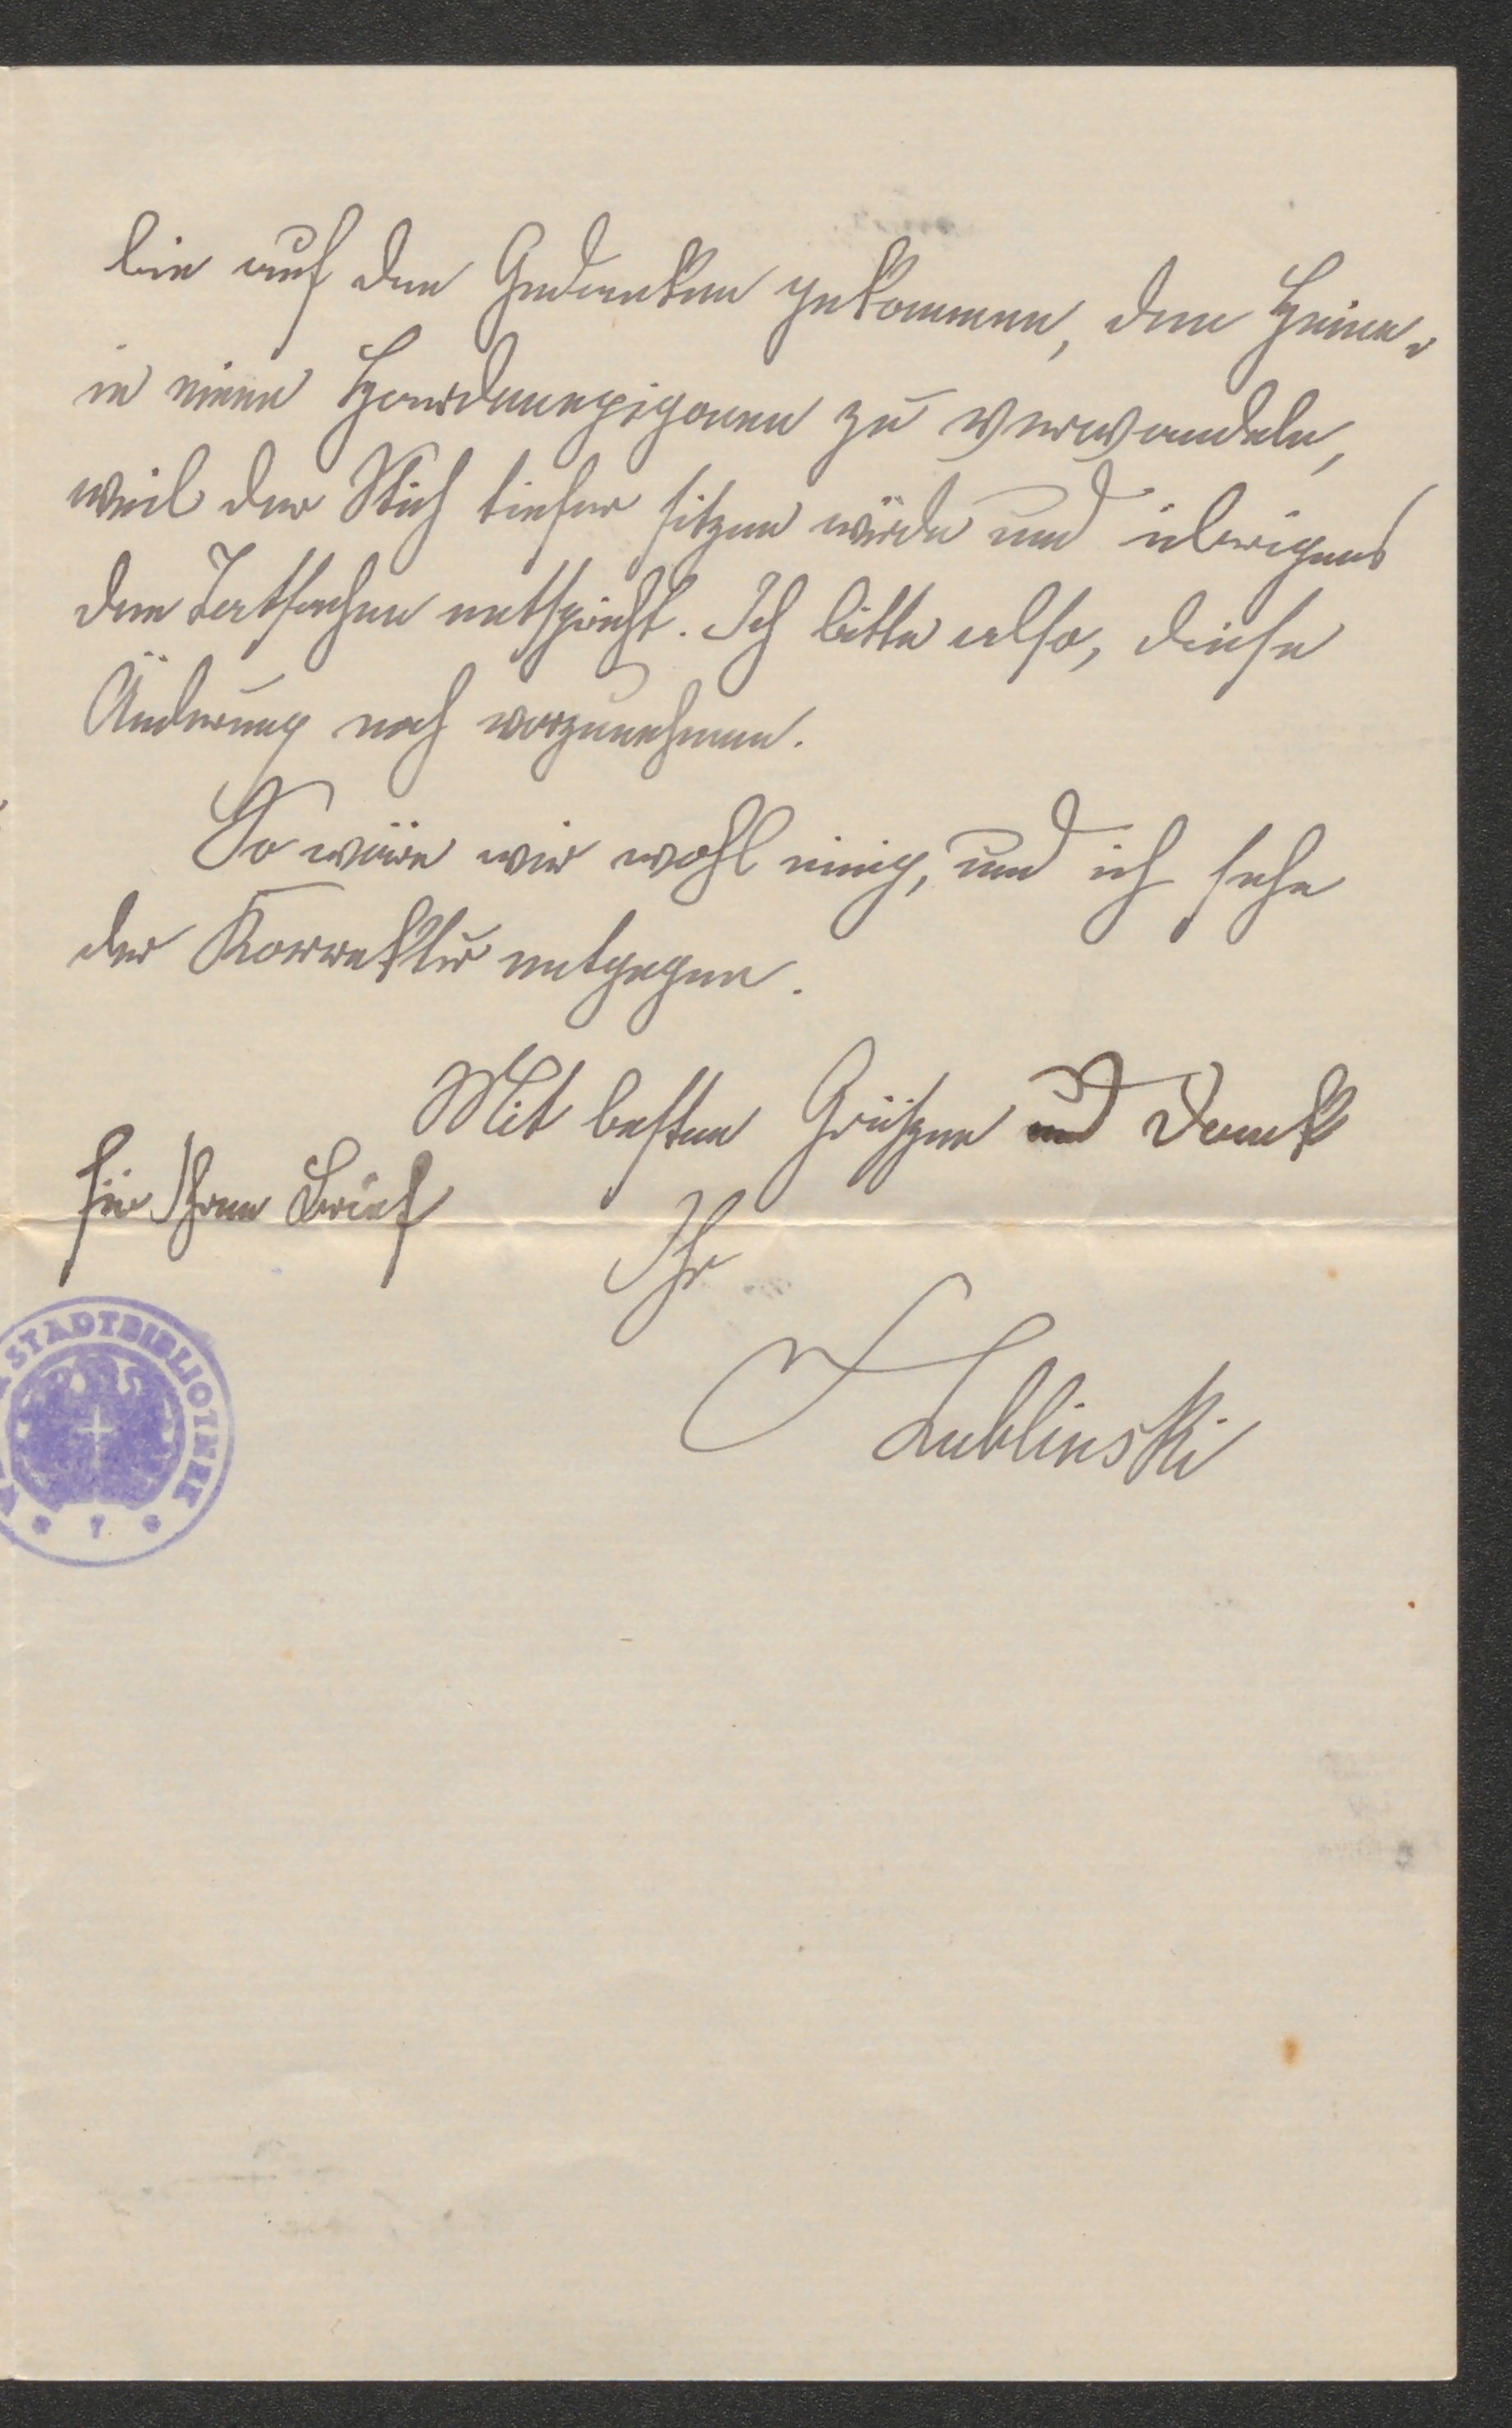 bin auf den Gedanken gekommen, den Heine-
in einen Hardenepigonen zu verwandeln,
weil der Stich tiefer sitzen würde und übrigens
den Tatsachen entspricht. Ich bitte also, diese
Änderung noch vorzunehmen.
So wären wir wohl einig, und ich sehe
der Korrektur entgegen.
Mit besten Grüßen und Dank
für Ihren Brief
Ihr
S Lublinski
STADTBIBLIOTHEK
* 7 *